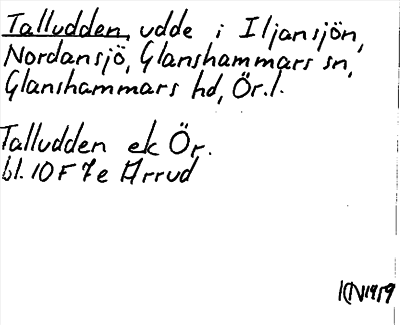 Talludden, udde i Iljansjön,
Nordansjö, Glanshammars sn,
Glanshammars hd, Ör.l.
Talludden ek Ör.
bl. 10 F 7 e Arrud
KN 1959